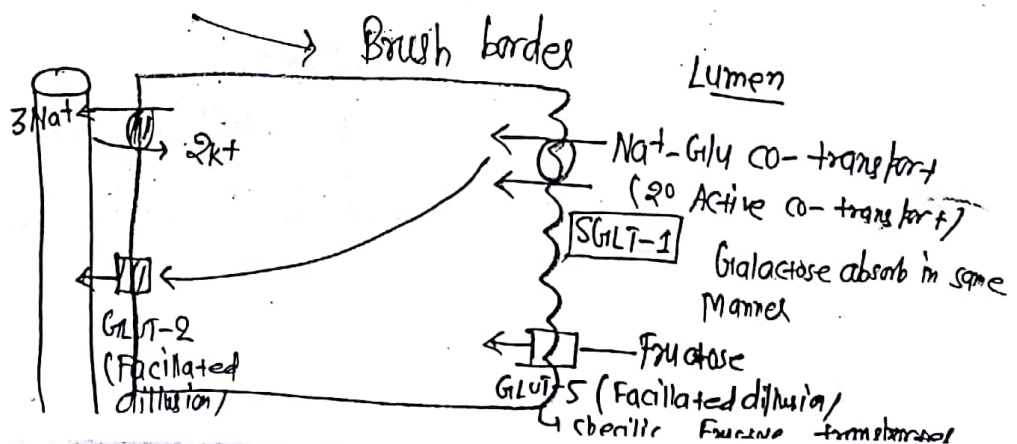 Brush border
Lumen
3Na+
2K+
Na+-Glu co-transport
(2° Active co-transport)
SGLT-1
Galactose absorb in same
Manner
GLUT-2
(Facillated
diffusion)
Fructose
GLUT-5 (Facillated diffusion)
specific Fructose transporter